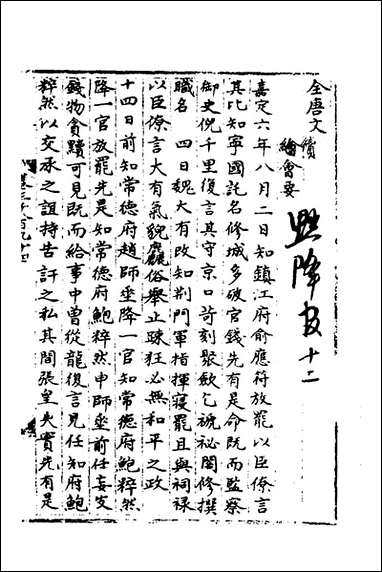 全唐文
續會要
黜降官十二
嘉定六年八月二日知鎮江府俞應符放罷以臣僚言
其比知寧國託名修城多破官錢先有是命既而監察
御史倪千里復言其守京口苛刻聚歛乞褫祕閣修撰
職名 四日魏大有改知荆門軍指揮寢罷且與祠禄
以臣僚言大有氣貌麤俗舉止踈狂必無和平之政
十四日前知常德府趙師垂降一官知常德府鮑粹然
降一官放罷先是知常德府鮑粹然申師垂前任妄支
錢物貪黷可見既而給事中曾從龍復言見任知府鮑
粹然以交承之誼持苦訐之私其間張皇失實先有是